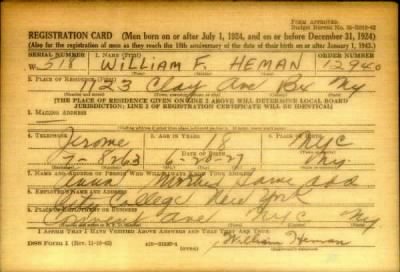 FORM APPROVED.
REGISTRATION CARD (Men born on or after July 1, 1924, and on or before December 31, 1924)
(Also for the registration of men as they reach the 18th anniversary of the date of their birth on or after January 1, 1943.)
SERIAL NUMBER 1. NAME (Print) ORDER NUMBER
W 518 WILLIAM F. HEMAN 12940
(First) (Middle) (Last)
2. PLACE OF RESIDENCE (Print)
Clay Ave Bx Ny
[THE PLACE OF RESIDENCE GIVEN ON LINE 2 ABOVE WILL DETERMINE LOCAL BOARD
JURISDICTION; LINE 2 OF REGISTRATION CERTIFICATE WILL BE IDENTICAL]
3. MAILING ADDRESS
4. TELEPHONE 5. AGE IN YEARS 6. PLACE OF BIRTH
Jerome 18 NYC
DATE OF BIRTH
7-8263 Ny
7. NAME AND ADDRESS OF PERSON WHO WILL ALWAYS KNOW YOUR ADDRESS
Same add
8. EMPLOYER'S NAME AND ADDRESS
City College New York
9. PLACE OF EMPLOYMENT OR BUSINESS
Convent Ave NYC Ny
I AFFIRM THAT I HAVE VERIFIED ABOVE ANSWERS AND THAT THEY ARE TRUE.
DSS Form 1 William Heman